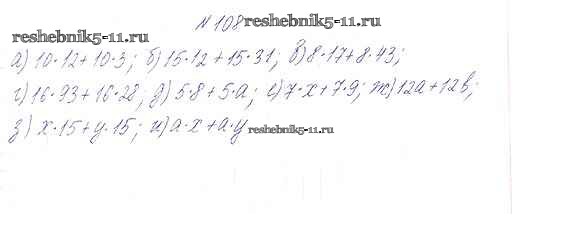 №108 reshebnik5-11.ru
reshebnik5-11.ru
а) 10·12+10·3; б) 15·12+15·31; в) 8·17+8·43;
г) 16·93+16·28; д) 5·8+5·a; е) 7·x+7·9; ж) 12a+12b;
з) x·15+y·15; и) a·x+a·y reshebnik5-11.ru